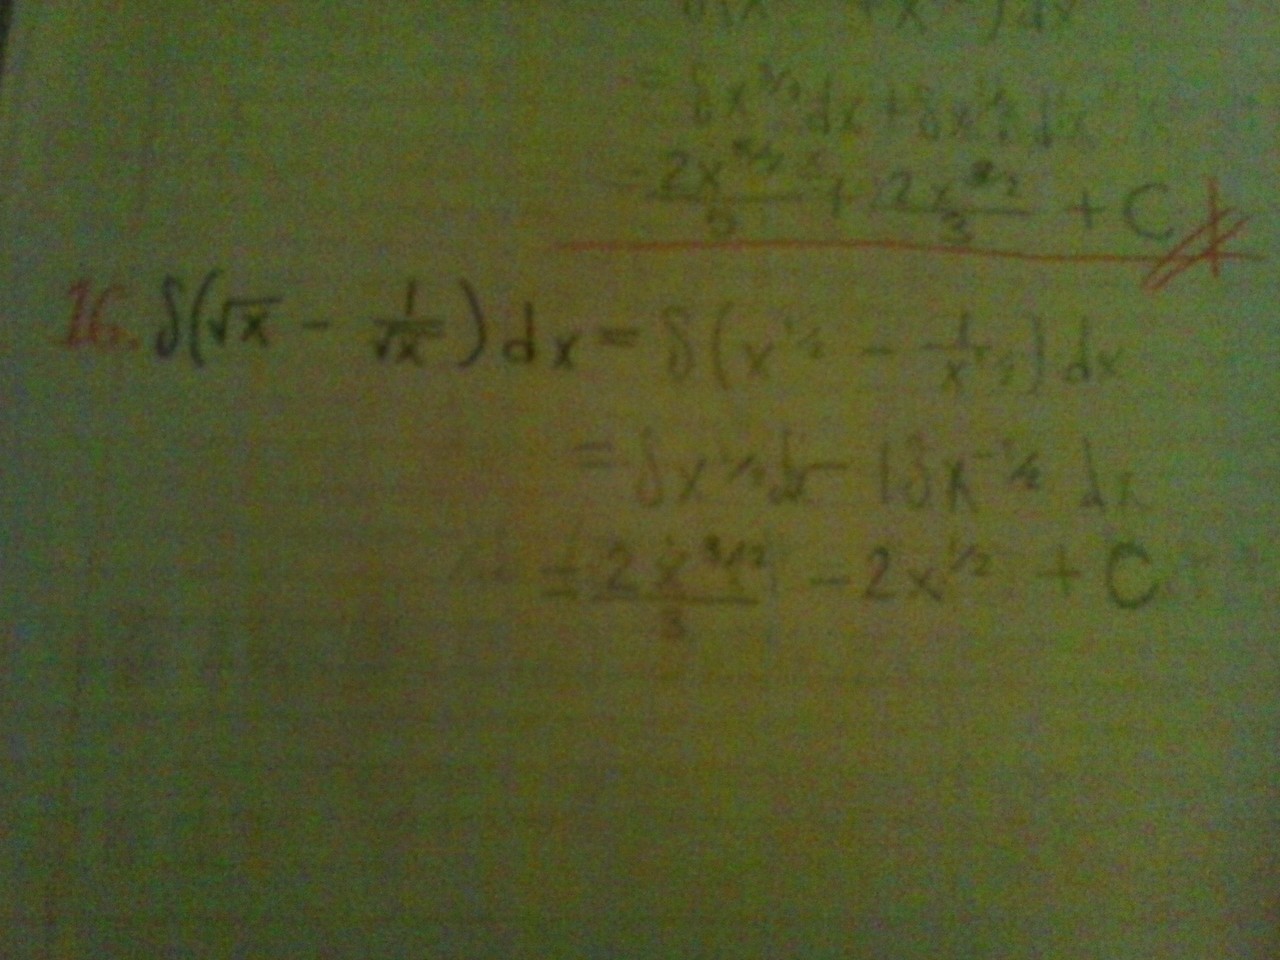 = ∫x³ᐟ²dx + ∫x¹ᐟ²dx
= 2x⁵ᐟ²/5 + 2x³ᐟ²/3 + C
16. ∫(√x - 1/√x)dx = ∫(x¹ᐟ² - 1/x¹ᐟ²)dx
= ∫x¹ᐟ²dx - 1∫x⁻¹ᐟ² dx
= 2x³ᐟ²/3 - 2x¹ᐟ² + C